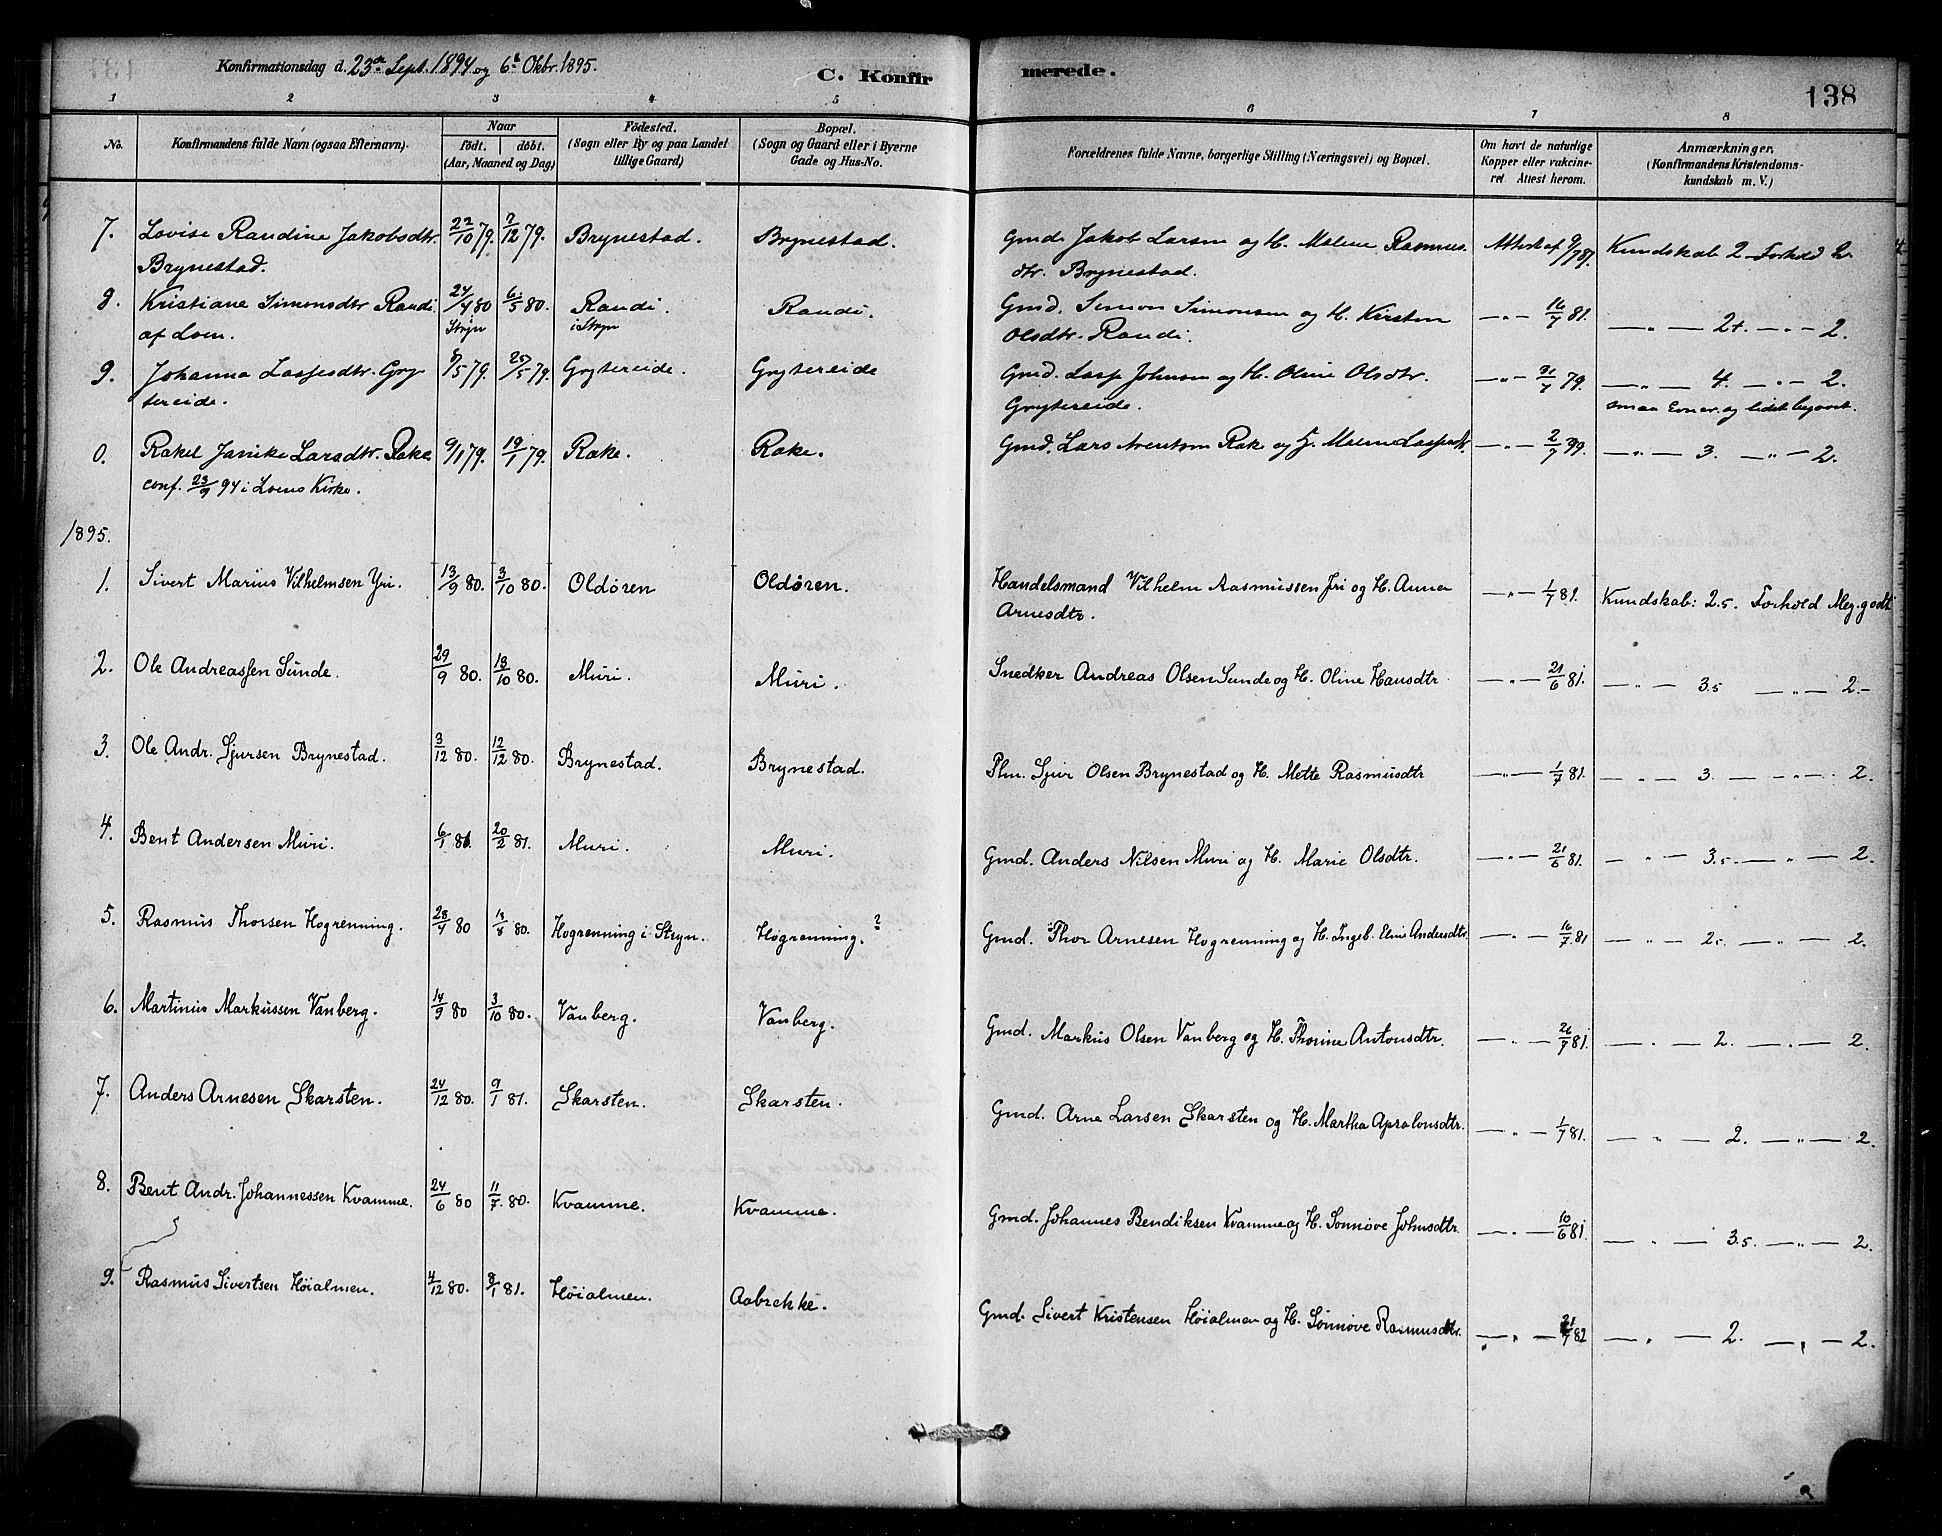 Konfirmationsdag d. 23de Sept. 1894 og 6te Oktbr. 1895.
C. Konfirmerede.
138
1 2 3 4 5 6 7 8
No.
Konfirmandens fulde Navn (ogsaa Efternavn).
Naar
födt. döbt.
(Aar, Maaned og Dag)
Födested.
(Sogn eller By og paa Landet
tillige Gaard)
Bopæl.
(Sogn og Gaard eller i Byerne
Gade og Hus-No.
Forældrenes fulde Navne, borgerlige Stilling (Næringsvei) og Bopæl.
Om havt de naturlige
Kopper eller vakcine-
ret Attest herom.
Anmærkninger,
(Konfirmandens Kristendoms-
kundskab m. V.)
7. Lovise Randine Jakobsdtr. 22/10 79. 7/12 79. Brynestad. Brynestad. Gmd. Jakob Larsen og H. Malene Rasmus- Attest af 9/7 87. Kundskab 2 Forhold 2.
Brynestad. dtr. Brynestad.
8. Kristiane Simonsdtr Raudi 24/4 80 6/5 80. Raudi. Raudi. Gmd. Simon Simonsen og H. Kirsten —"— 16/7 81. —"— 2+. —"— 2.
af Loen. Stryn i Stryn Olsdtr. Raudi.
9. Johanna Lassesdtr. Gry- 5/5 79. 25/5 79. Grytereide. Grytereide Gmd. Lasse Johnsen og H. Oline Olsdtr. —"— 31/7 79. —"— 4. —"— 2.
tereide. Grytereide. smaa Evner og lidet begavet.
0. Rakel Janike Larsdtr. Rake 9/1 79. 19/1 79. Rake. Rake. Gmd. Lars Arentsen Rake og H. Malene Lassesdtr. —"— 2/7 79. —"— 3. —"— 2.
conf. 23/9 94 i Loens Kirke.
1895.
1. Sivert Marius Vilhelmsen Yri. 13/9 80. 3/10 80. Oldören Oldören. Handelsmand Vilhelm Rasmussen Yri og H. Anna —"— 1/7 81. Kundskab: 2.5. Forhold Meg. godt
Arnesdtr.
2. Ole Andreassen Sunde. 29/9 80. 13/10 80. Muri. Muri. Snedker Andreas Olsen Sunde og H. Oline Hansdtr —"— 21/6 81. —"— 3.5 —"— 2.-
3. Ole Andr. Sjursen Brynestad. 3/12 80. 12/12 80. Brynestad. Brynestad. Plm. Sjur Olsen Brynestad og H. Mette Rasmusdtr —"— 1/7 81. —"— 3. —"— 2.
4. Bent Andersen Muri. 6/1 81. 20/2 81. Muri. Muri. Gmd. Anders Nilsen Muri og H. Marie Olsdtr. —"— 21/6 81. —"— 3.5. —"— 2.
5. Rasmus Thorsen Hogrenning. 28/4 80 80. Hogrenning i Stryn. Hogrenning. ? Gmd. Thor Arnesen Hogrenning og H. Ingeb. Eline Andersdtr. —"— 16/7 81 —"— —"— 2.
6. Martinus Markussen Vanberg. 14/9 80 3/10 80. Vanberg. Vanberg. Gmd. Markus Olsen Vanberg og H. Thorine Antonsdtr. —"— 26/7 81. —"— 2. —"— 2.
7. Anders Arnesen Skarsten. 24/12 80. 9/1 81. Skarsten. Skarsten. Gmd. Arne Larsen Skarsten og H. Martha Apsalonsdtr. —"— 1/7 81. —"— 2. —"— 2.
8. Bent Andr. Johannessen Kvamme. 24/6 80 11/7 80. Kvamme. Kvamme. Gmd. Johannes Bendiksen Kvamme og H. Sonnöve Johnsdtr. —"— 10/6 81. —"— 3.5. —"— 2.
9. Rasmus Sivertsen Höialmen. 4/12 80. 8/1 81. Höialmen. Aabrekke. Gmd. Sivert Kristensen Höialmen og H. Sönnöve Rasmusdtr. —"— 21/7 82 —"— 2. —"— 2.